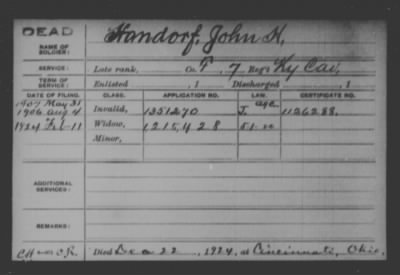 DEAD
NAME OF SOLDIER:
Handorf, John H,
SERVICE:
Late rank, Co. F, 7 Reg't Ky Cav,
TERM OF SERVICE:
Enlisted , 1 Discharged , 1
DATE OF FILING. CLASS. APPLICATION NO. LAW. CERTIFICATE NO.
1907 May 31
1906 Aug 4 Invalid, 1351270 J. age 1126288.
1924 Feb 11 Widow, 1215,428
Minor,
ADDITIONAL SERVICES:
REMARKS:
Died 22, 1924, at Cincinnati, Ohio,